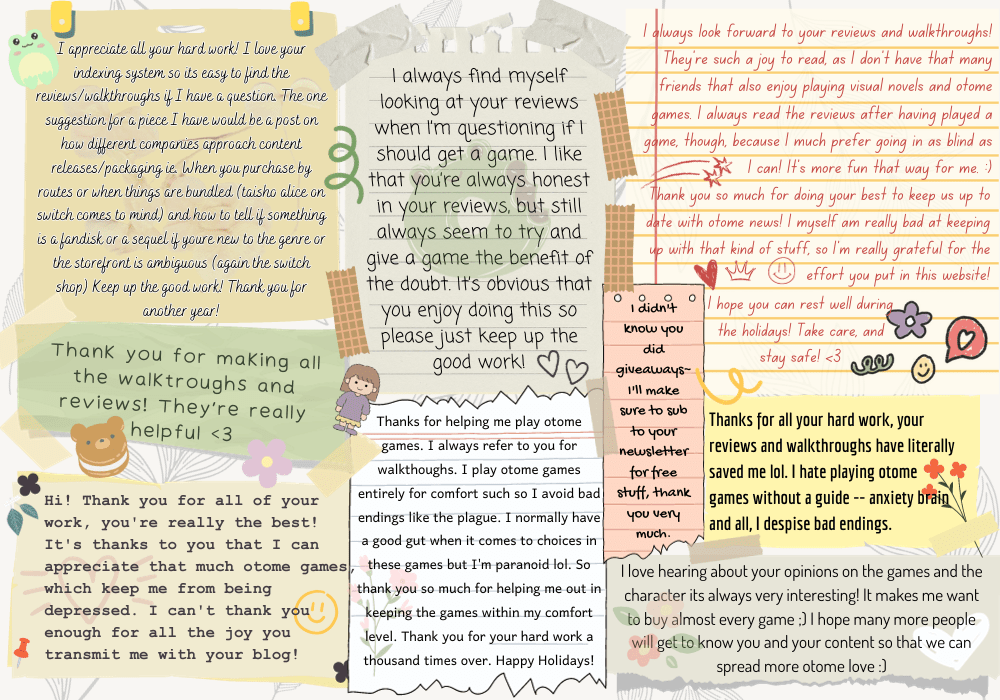 I appreciate all your hard work! I love your
indexing system so its easy to find the
reviews/walkthroughs if I have a question. The one
suggestion for a piece I have would be a post on
how different companies approach content
releases/packaging ie. When you purchase by
routes or when things are bundled (taisho alice on
switch comes to mind) and how to tell if something
is a fandisk or a sequel if youre new to the genre or
the storefront is ambiguous (again the switch
shop) Keep up the good work! Thank you for
another year!
Thank you for making all
the walktroughs and
reviews! They're really
helpful <3
Hi! Thank you for all of your
work, you're really the best!
It's thanks to you that I can
appreciate that much otome games,
which keep me from being
depressed. I can't thank you
enough for all the joy you
transmit me with your blog!
I always find myself
looking at your reviews
when I'm questioning if I
should get a game. I like
that you're always honest
in your reviews, but still
always seem to try and
give a game the benefit of
the doubt. It's obvious that
you enjoy doing this so
please just keep up the
good work!
Thanks for helping me play otome
games. I always refer to you for
walkthoughs. I play otome games
entirely for comfort such so I avoid bad
endings like the plague. I normally have
a good gut when it comes to choices in
these games but I'm paranoid lol. So
thank you so much for helping me out in
keeping the games within my comfort
level. Thank you for your hard work a
thousand times over. Happy Holidays!
I always look forward to your reviews and walkthroughs!
They're such a joy to read, as I don't have that many
friends that also enjoy playing visual novels and otome
games. I always read the reviews after having played a
game, though, because I much prefer going in as blind as
I can! It's more fun that way for me. :)
Thank you so much for doing your best to keep us up to
date with otome news! I myself am really bad at keeping
up with that kind of stuff, so I'm really grateful for the
effort you put in this website!
I hope you can rest well during
the holidays! Take care, and
stay safe! <3
I didn't
know you
did
giveaways~
I'll make
sure to sub
to your
newsletter
for free
stuff, thank
you very
much.
Thanks for all your hard work, your
reviews and walkthroughs have literally
saved me lol. I hate playing otome
games without a guide -- anxiety brain
and all, I despise bad endings.
I love hearing about your opinions on the games and the
character its always very interesting! It makes me want
to buy almost every game ;) I hope many more people
will get to know you and your content so that we can
spread more otome love :)